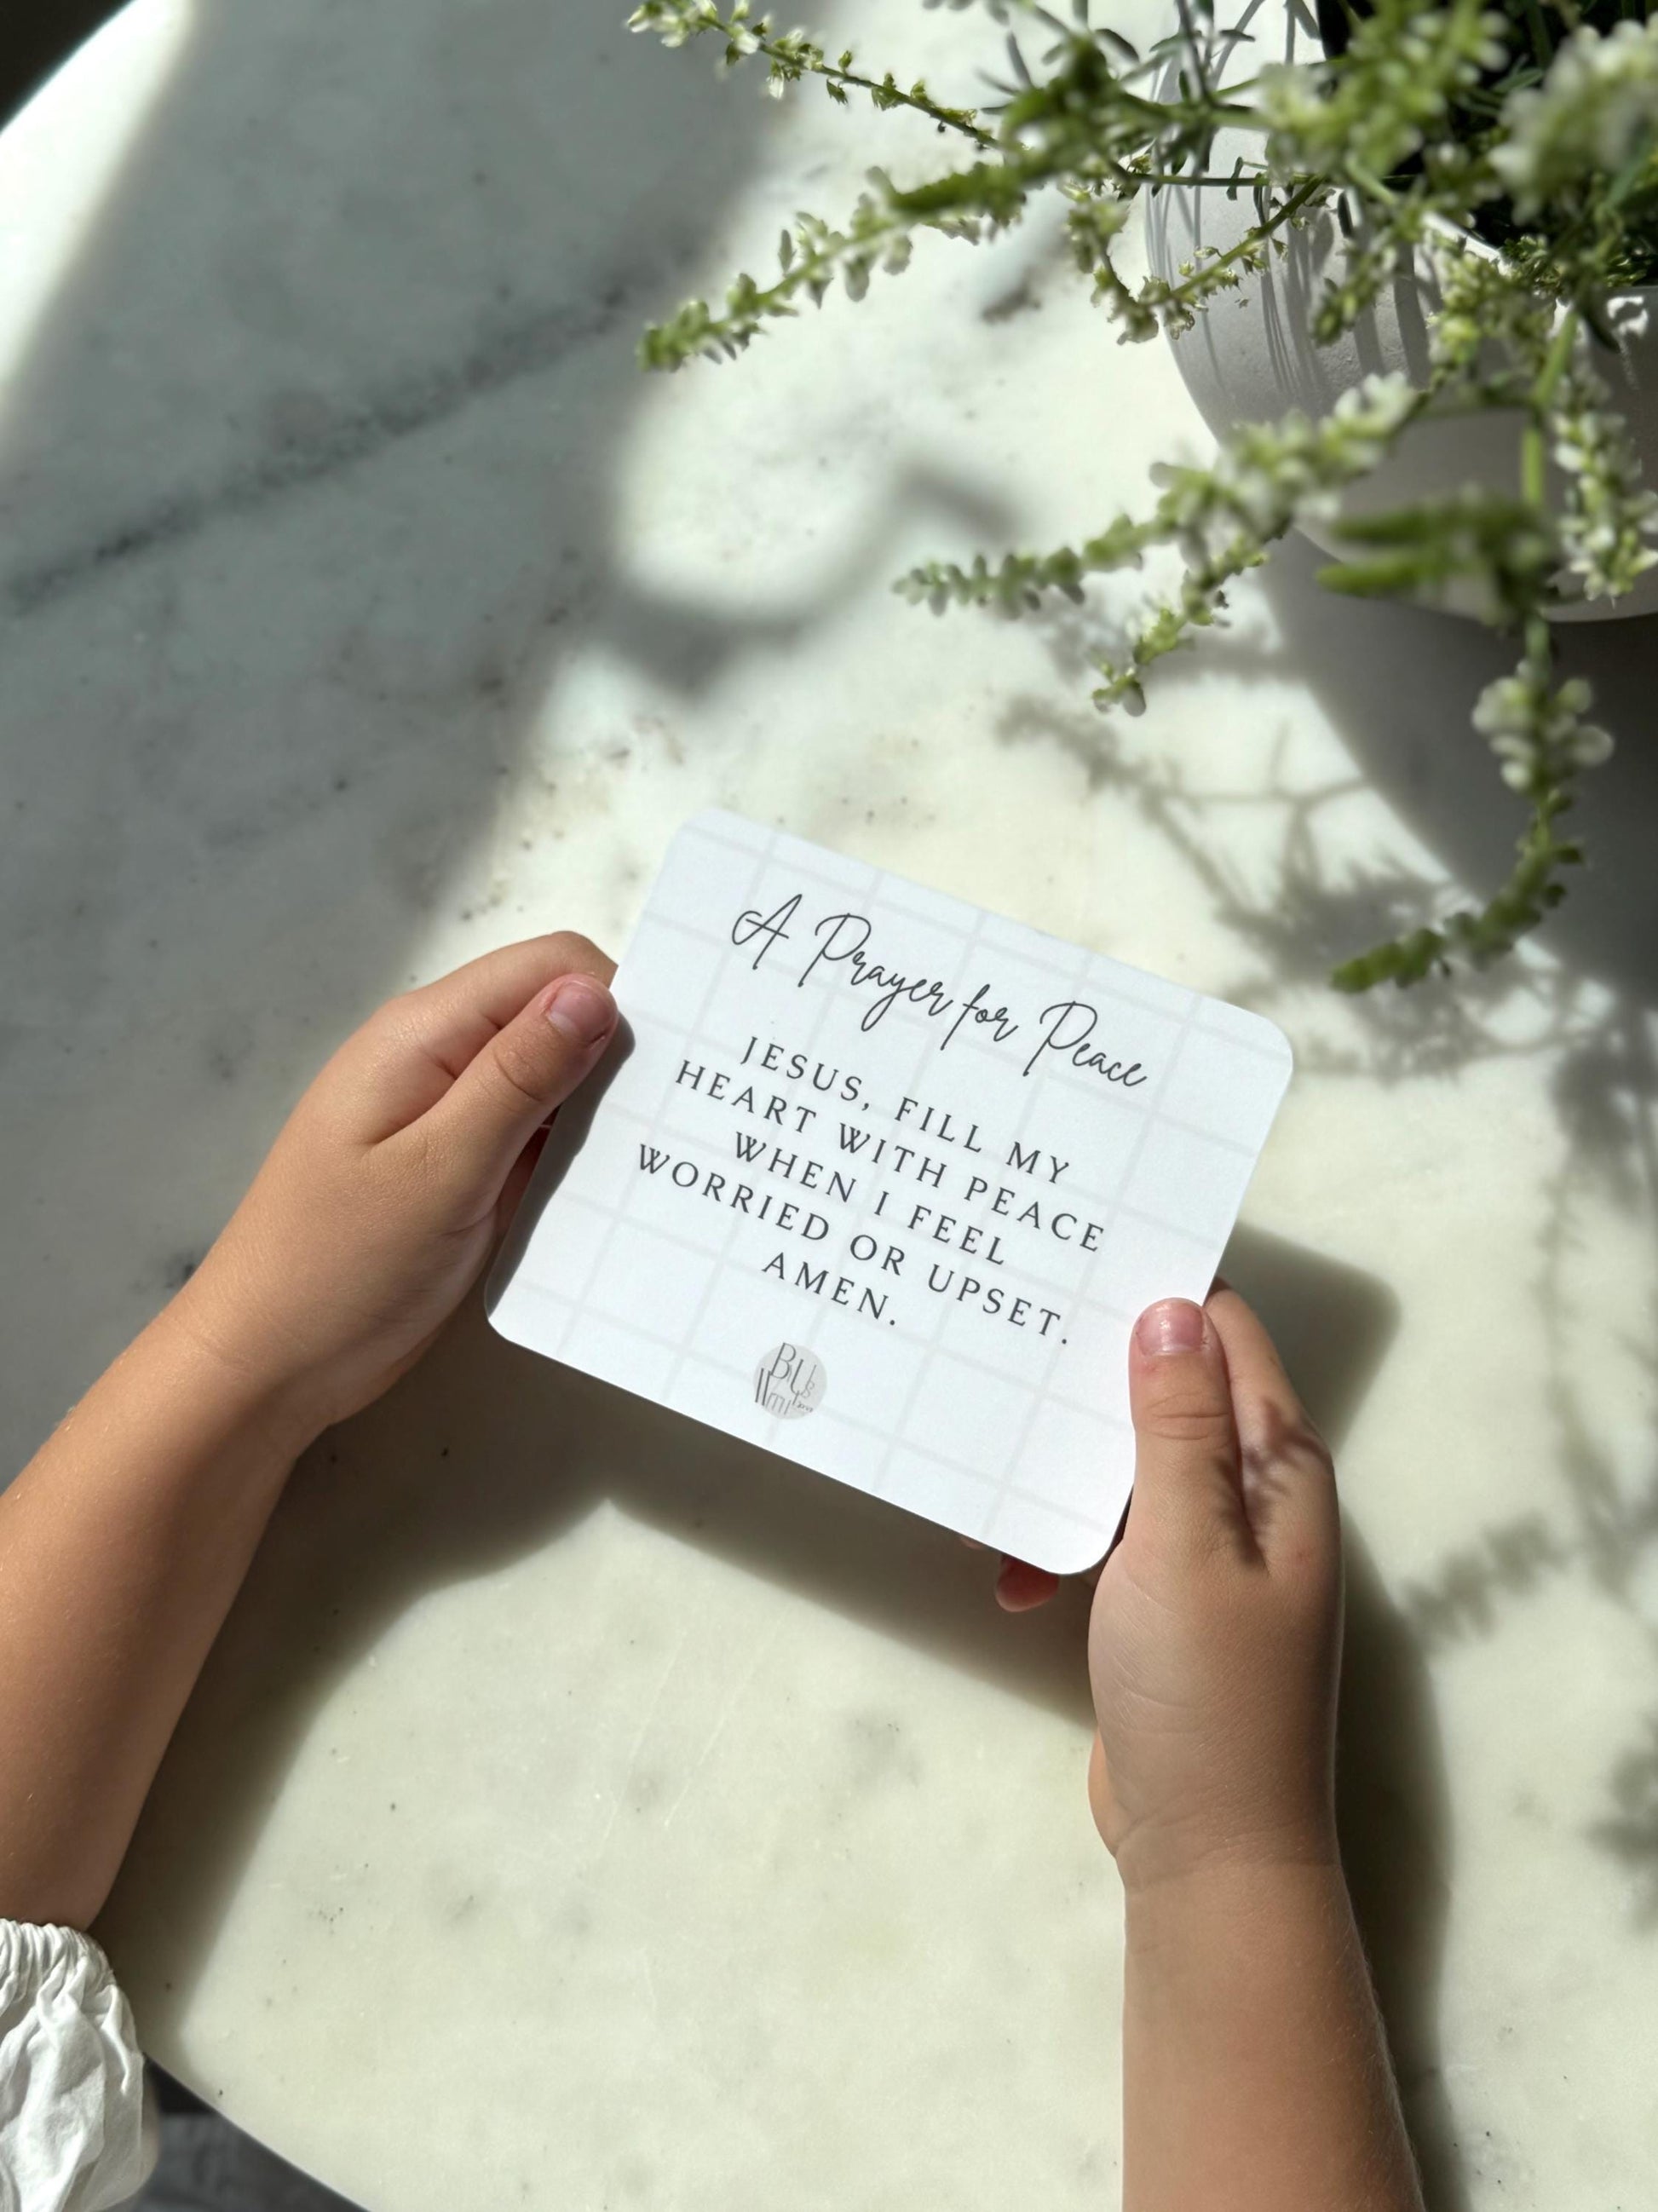 A Prayer for Peace
JESUS, FILL MY
HEART WITH PEACE
WHEN I FEEL
WORRIED OR UPSET.
AMEN.